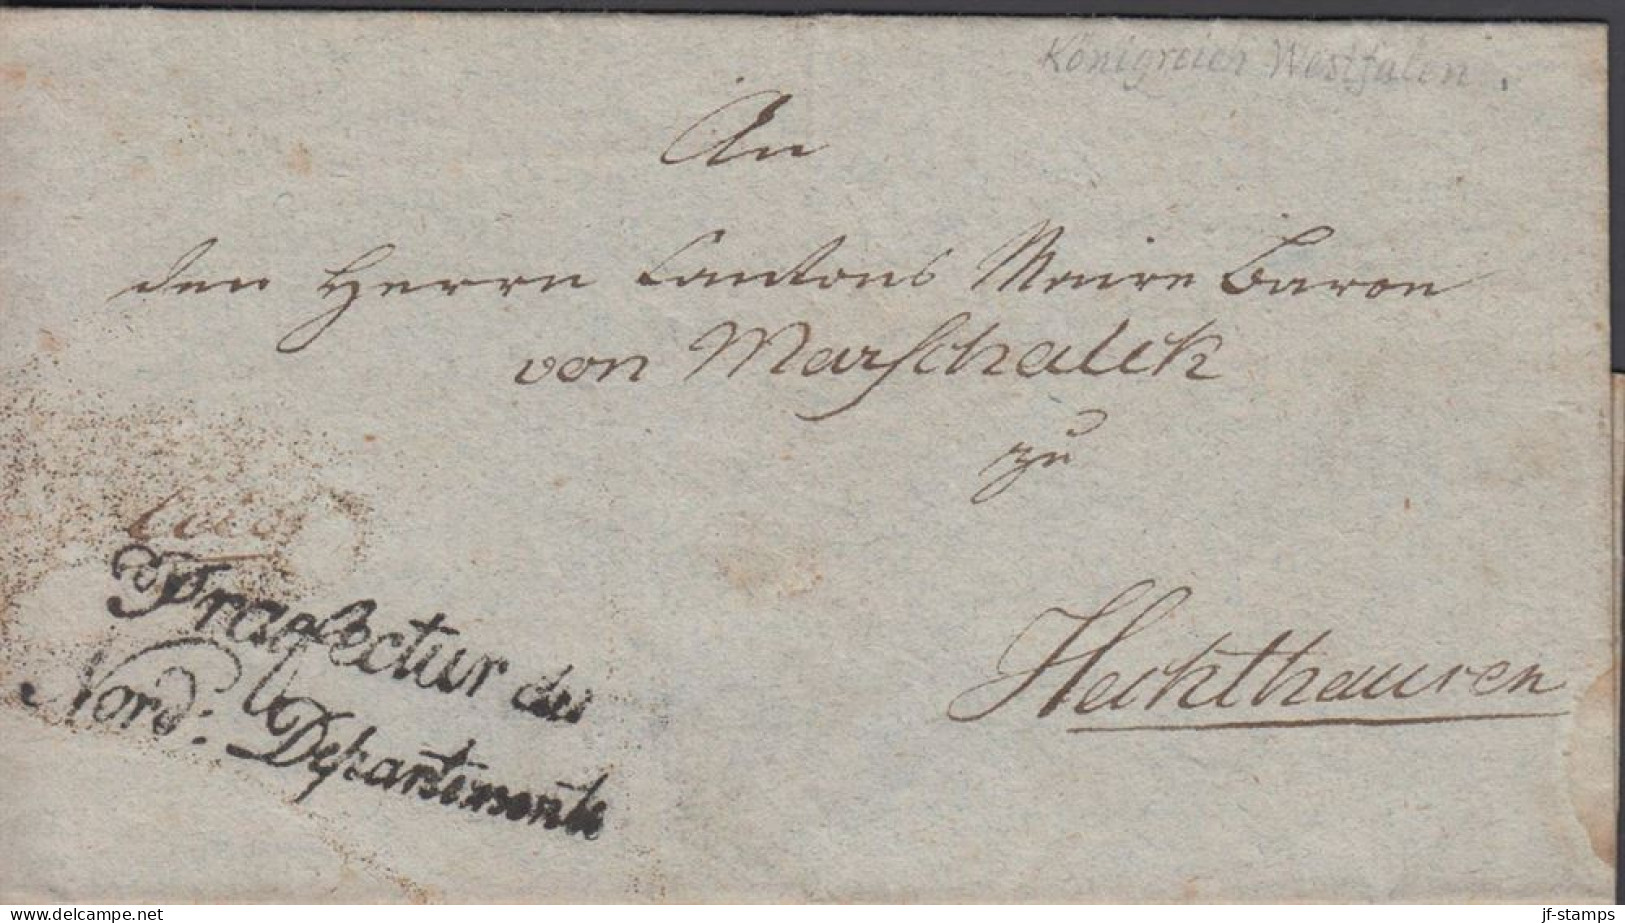 Königreich Westfalen.
An
den Herrn Cantons Maire Baron
von Marschalck
zu
Hechthausen
Praefectur des
Nord: Departements
www.delcampe.net
jf-stamps